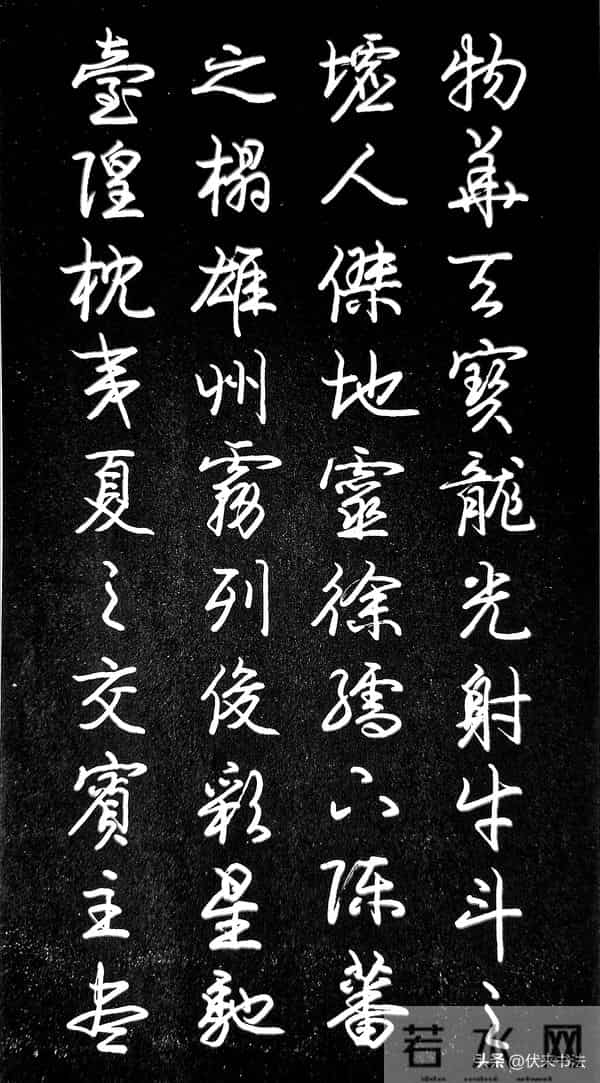 物華天寶龍光射牛斗之
墟人傑地靈徐孺下陳蕃
之榻雄州霧列俊彩星馳
臺隍枕夷夏之交賓主盡
若水网
头条 @伏来书法